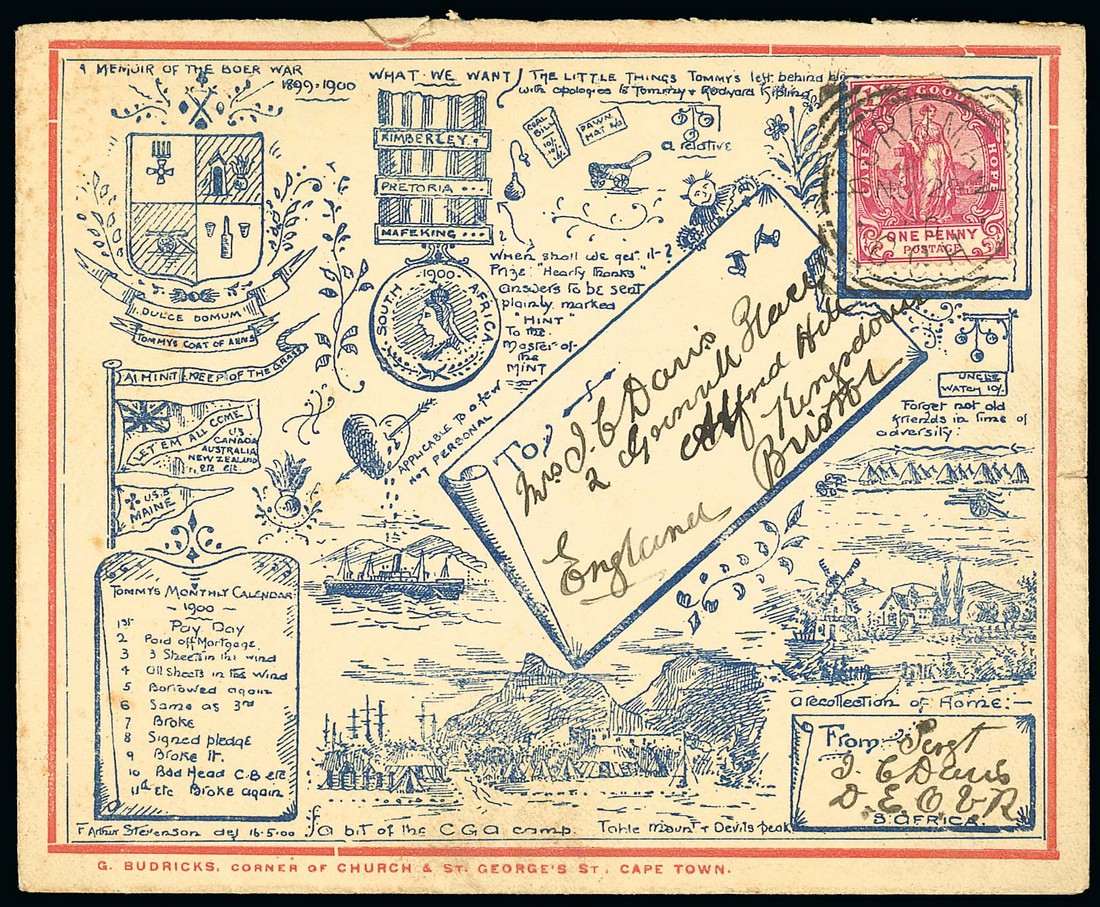 A MEMOIR OF THE BOER WAR
1899-1900
WHAT WE WANT!
THE LITTLE THINGS TOMMY'S left behind him
with apologies to Tommy & Rudyard Kipling
COAL
BILL
10/
PAWN
a relative
KIMBERLEY
PRETORIA
MAFEKING
1900
SOUTH AFRICA
When shall we get it?
Prize: "Hearty Thanks"
Answers to be sent
plainly marked
"HINT"
To the
Master of
the
MINT
CAPE OF GOOD HOPE
ONE PENNY
POSTAGE
DULCE DOMUM
TOMMYS COAT OF ARMS
A HINT KEEP OF THE GRASS
LET 'EM ALL COME
U.S.
CANADA
AUSTRALIA
NEW ZEALAND
etc etc.
U.S.S
MAINE
APPLICABLE TO A FEW
NOT PERSONAL
To
Mrs J. C Davis
2 Grenville Place
Alfred Hill
Kingsdown
Bristol
England
UNCLE
WATCH 10/.
Forget not old
friends in time of
adversity:
TOMMYS MONTHLY CALENDAR
1900
1st Pay Day
2 Paid off Mortgage
3 3 Sheets in the wind
4 All sheets in the wind
5 Borrowed again
6 Same as 3rd
7 Broke
8 Signed pledge
9 Broke it.
10 Bad Head C.B etc
11th etc Broke again
a recollection of Home:-
From
Sergt
J C Davis
D. E. O. V. R
S. AFRICA
F Arthur Stevenson del 16.5.00
a bit of the CGA camp.
Table Mount & Devils peak
G. BUDRICKS, CORNER OF CHURCH & ST. GEORGE'S ST, CAPE TOWN.